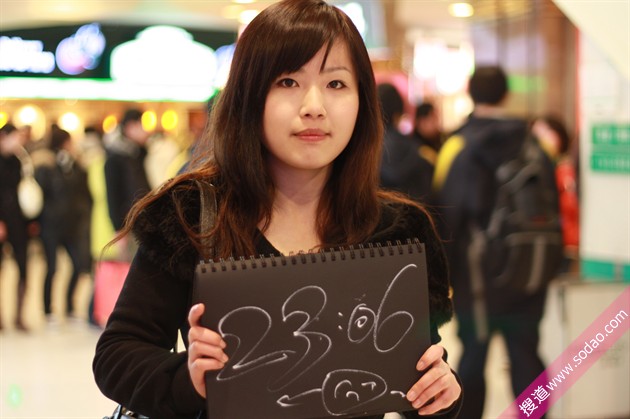 23:06
搜道www.sodao.com